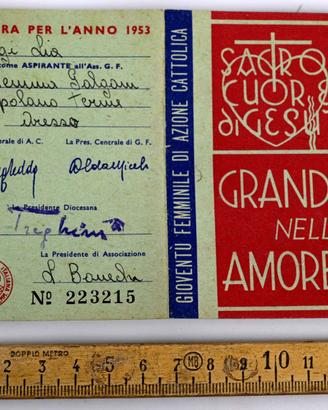 RA PER L'ANNO 1953
Lia
come ASPIRANTE all'Ass. G. F.
Gemma Galgani
Terme
Arezzo
rale di A. C.
La Pres. Centrale di G. F.
La Presidente Diocesana
La Presidente di Associazione
Nº 223215
GIOVENTÙ FEMMINILE DI AZIONE CATTOLICA
SACRO
CUOR
di GESU
GRAND
NELL
AMORE
DOPPIO METRO
1 2 3 4 5 6 7 MB 8 9 10 11